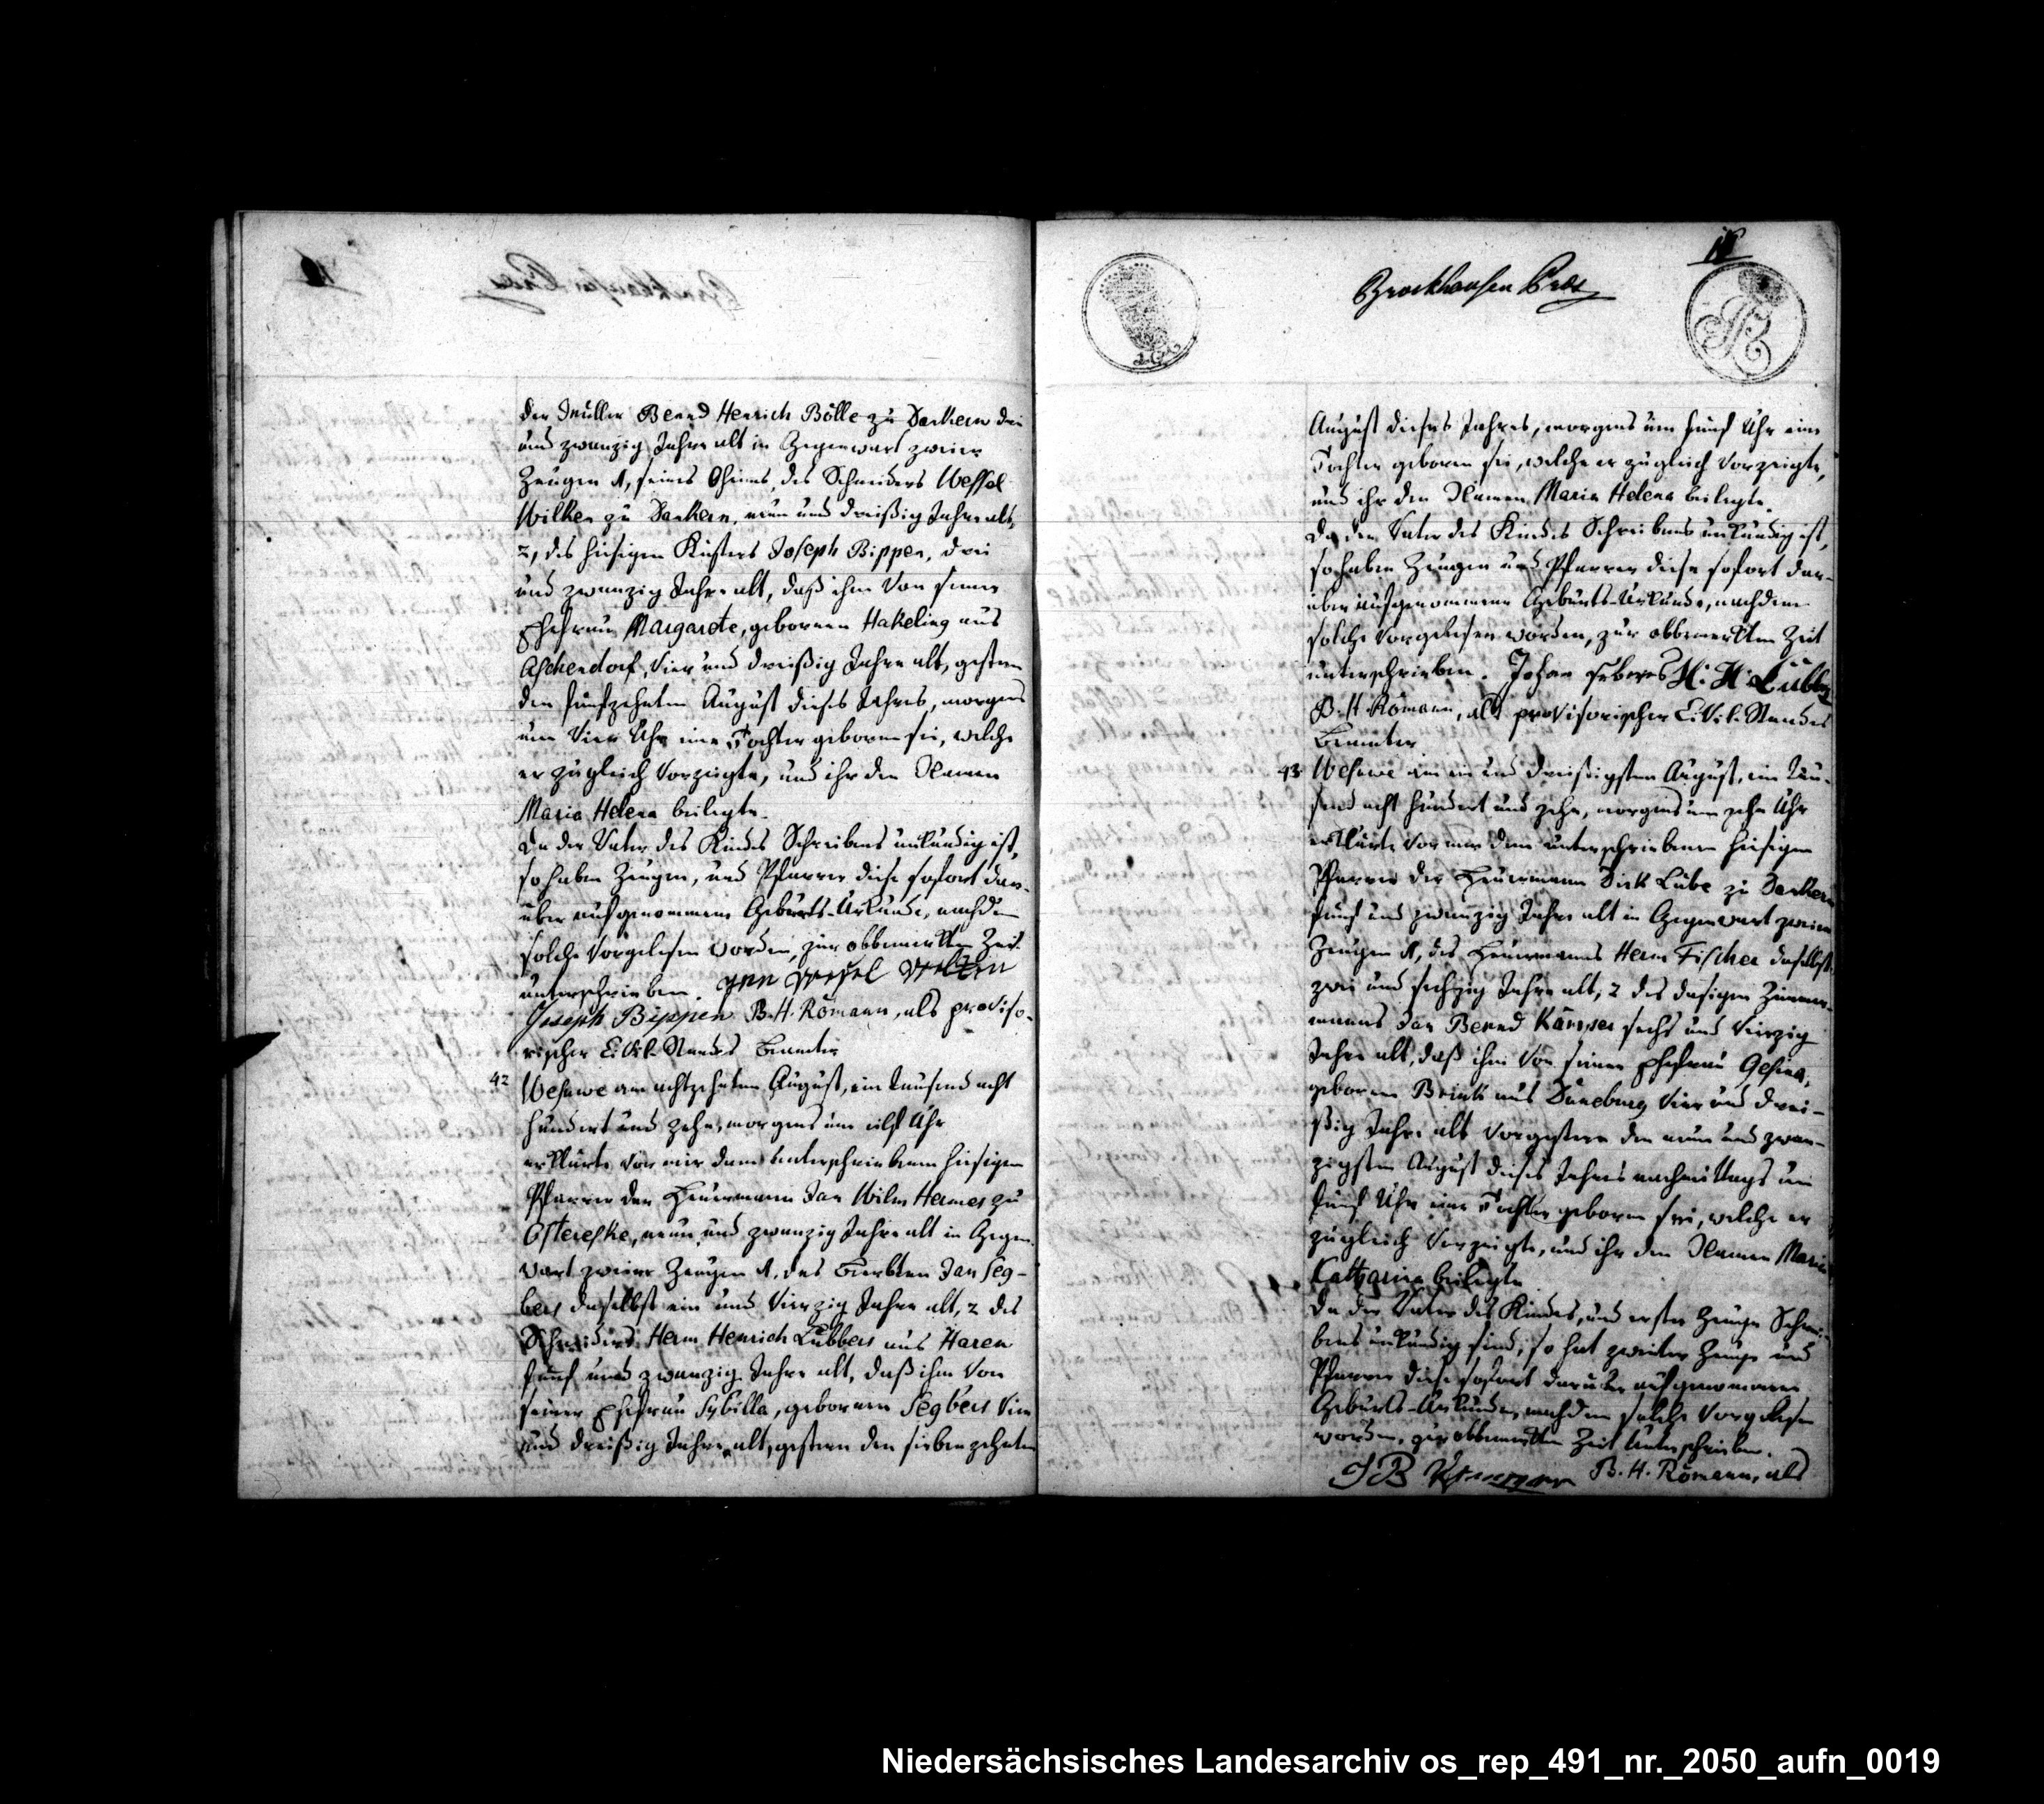 der Müller Bernd Henrich Bölle zu Dankern drei
und zwanzig Jahre alt in Gegenwart zweier
Zeugen 1, seines Oheims, des Schneiders Wessel
Wilken zu Dankern, neun und dreißig Jahre alt,
2, des hiesigen Küsters Joseph Bippen, drei
und zwanzig Jahre alt, daß ihm von seiner
Ehefrau Margarete, gebornen Hakeling aus
Aschendorf, vier und dreißig Jahre alt, gestern
den fünfzehnten August dieses Jahres, morgens
um vier Uhr eine Tochter geboren sei, welche
er zugleich vorzeigte, und ihr den Namen
Maria Helena beilegte.
Da der Vater des Kindes Schreibens unkundig ist,
so haben Zeugen, und Pfarrer diese sofort dar-
über aufgenommene Geburts-Urkunde, nachdem
solche vorgelesen worden, zur obbemerkten Zeit
unterschrieben. Jan Wessel Wilken
Joseph Bippen B. H. Römann, als proviso-
rischer Civil-Standes Beamter
42 Wesuwe am achtzehnten August, ein Tausend acht
hundert und zehn, morgens um eilf Uhr
erklärte vor mir dem unterschriebenen hiesigen
Pfarrer der Heuermann Jan Wilm Hermes zu
Versen Osterefke, neun und zwanzig Jahre alt in Gegen-
wart zweier Zeugen 1, des Beerbten Jan Seg-
bers daselbst ein und vierzig Jahre alt, 2 des
Schneiders Herm Henrich Lübbers aus Haren
fünf und zwanzig Jahre alt, daß ihm von
seiner Ehefrau Sybilla, gebornen Segbers vier
und dreißig Jahre alt, gestern den siebenzehnten
18
Brockhausen
August dieses Jahres, morgens um fünf Uhr eine
Tochter geboren sei, welche er zugleich vorzeigte,
und ihr den Namen Maria Helena beilegte.
Da der Vater des Kindes Schreibens unkundig ist,
so haben Zeugen und Pfarrer diese sofort dar-
über aufgenommene Geburts-Urkunde, nachdem
solche vorgelesen worden, zur obbemerkten Zeit
unterschrieben. Johan H. H. Lübbers
B. H. Römann, als provisorischer Civil-Standes
Beamter
43 Wesuwe am ein und dreißigsten August, ein Tau-
send acht hundert und zehn, morgens um zehn Uhr
erklärte vor mir dem unterschriebenen hiesigen
Pfarrer der Heuermann Dirk Lübe zu Dankern
fünf und zwanzig Jahre alt in Gegenwart zweier
Zeugen 1, des Heuermanns Herm Fischer daselbst
zwei und sechzig Jahre alt, 2 des dasigen Zimmer-
manns Jan Bernd Kämper sechs und vierzig
Jahre alt, daß ihm von seiner Ehefrau Gesina,
gebornen Brink aus Düneburg vier und drei-
ßig Jahre alt vorgestern den neun und zwan-
zigsten August dieses Jahres nachmittags um
fünf Uhr eine Tochter geboren sei, welche er
zugleich vorzeigte, und ihr den Namen Maria
Catharina beilegte
Da der Vater des Kindes, und erster Zeuge Schrei-
bens unkundig sind, so hat zweiter Zeuge und
Pfarrer diese sofort darüber aufgenommene
Geburts-Urkunde, nachdem solche vorgelesen
worden, zur obbemerkten Zeit unterschrieben.
J B B. H. Römann, als
Niedersächsisches Landesarchiv os_rep_491_nr._2050_aufn_0019